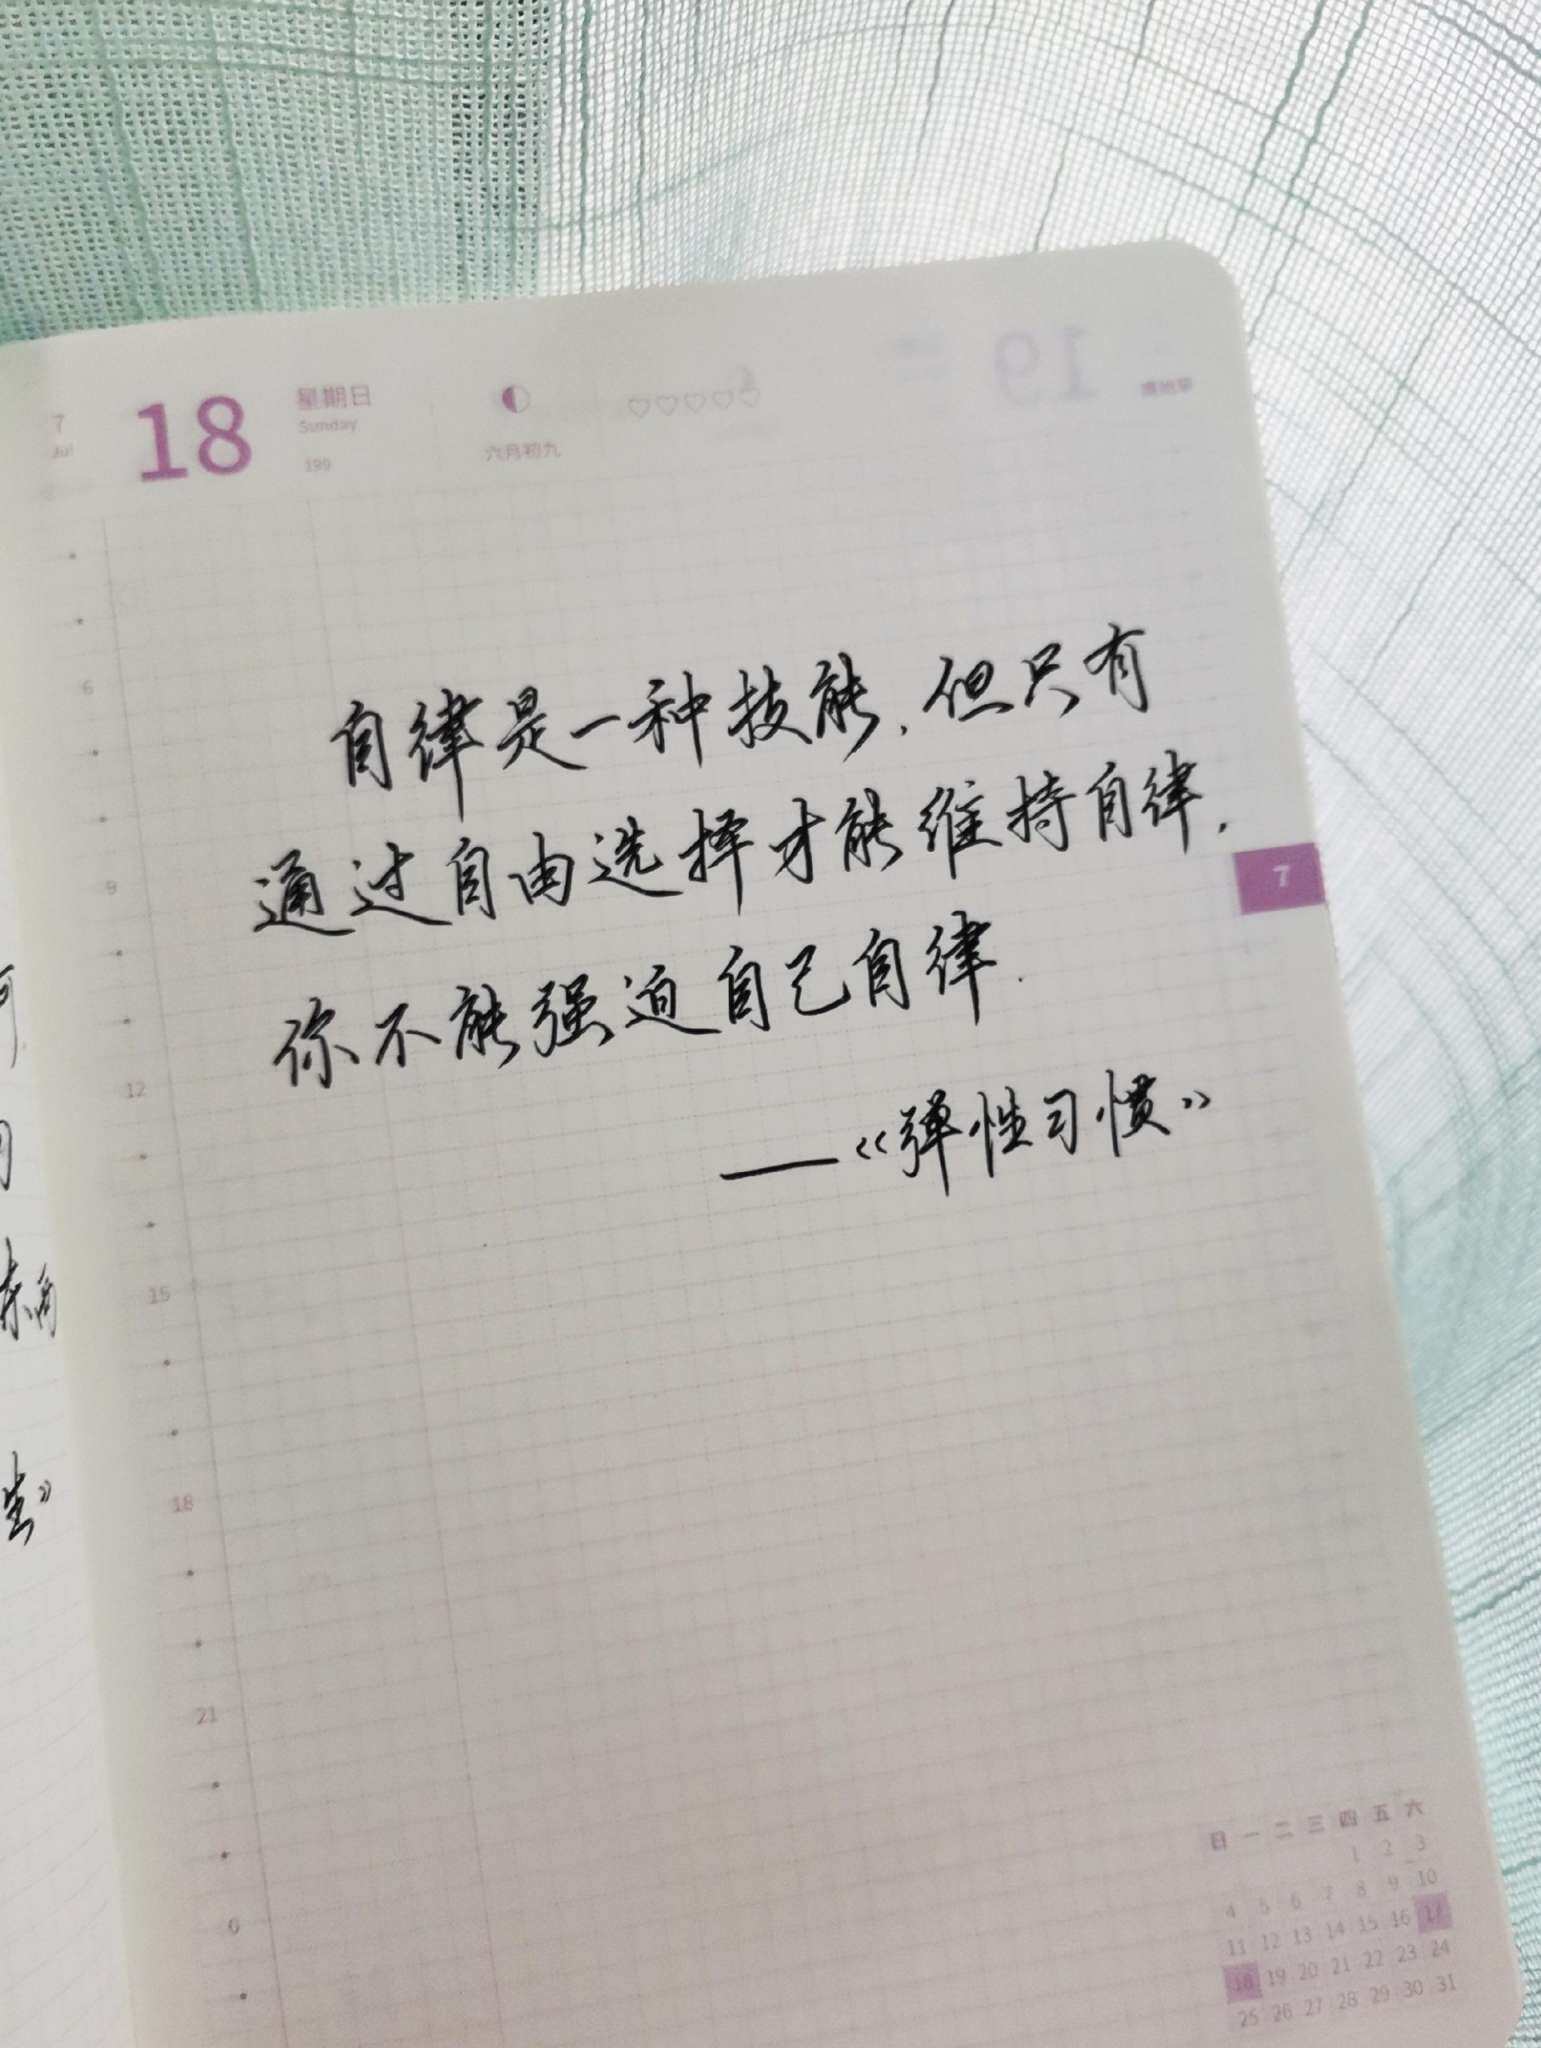 7
Jul
18
星期日
Sunday
199
六月初九
19
6
自律是一种技能,但只有
通过自由选择才能维持自律,
9
7
你不能强迫自己自律.
12
——《弹性习惯》
15
18
生》
21
0
日 一 二 三 四 五 六
1 2 3
4 5 6 7 8 9 10
11 12 13 14 15 16 17
18 19 20 21 22 23 24
25 26 27 28 29 30 31